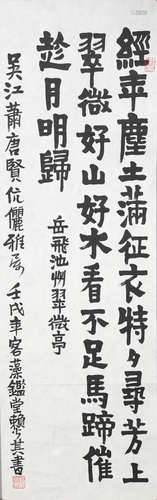 經年塵土滿征衣特々尋芳上
翠微好山好水看不足馬蹄催
趁月明歸
岳飛池州翠微亭
吴江蕭唐賢伉儷雅屬 壬戌年客藻鑑堂賴少其書